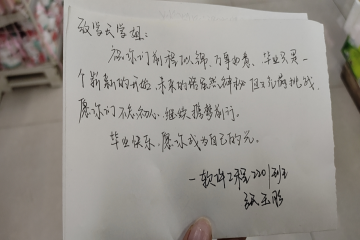 致学长学姐:
祝你们前程似锦,万事如意,毕业只是一
个崭新的开始,未来的路虽然 但充满挑战,
愿你们不忘初心,继续携梦前行。
毕业快乐,愿你成为自己的光。
—软件工程2201班